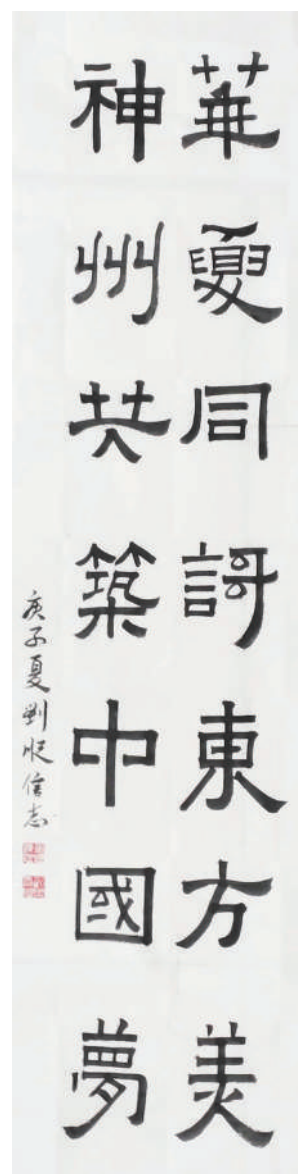 華夏同謌東方美
神州共築中國夢
庚子夏劉悅信志